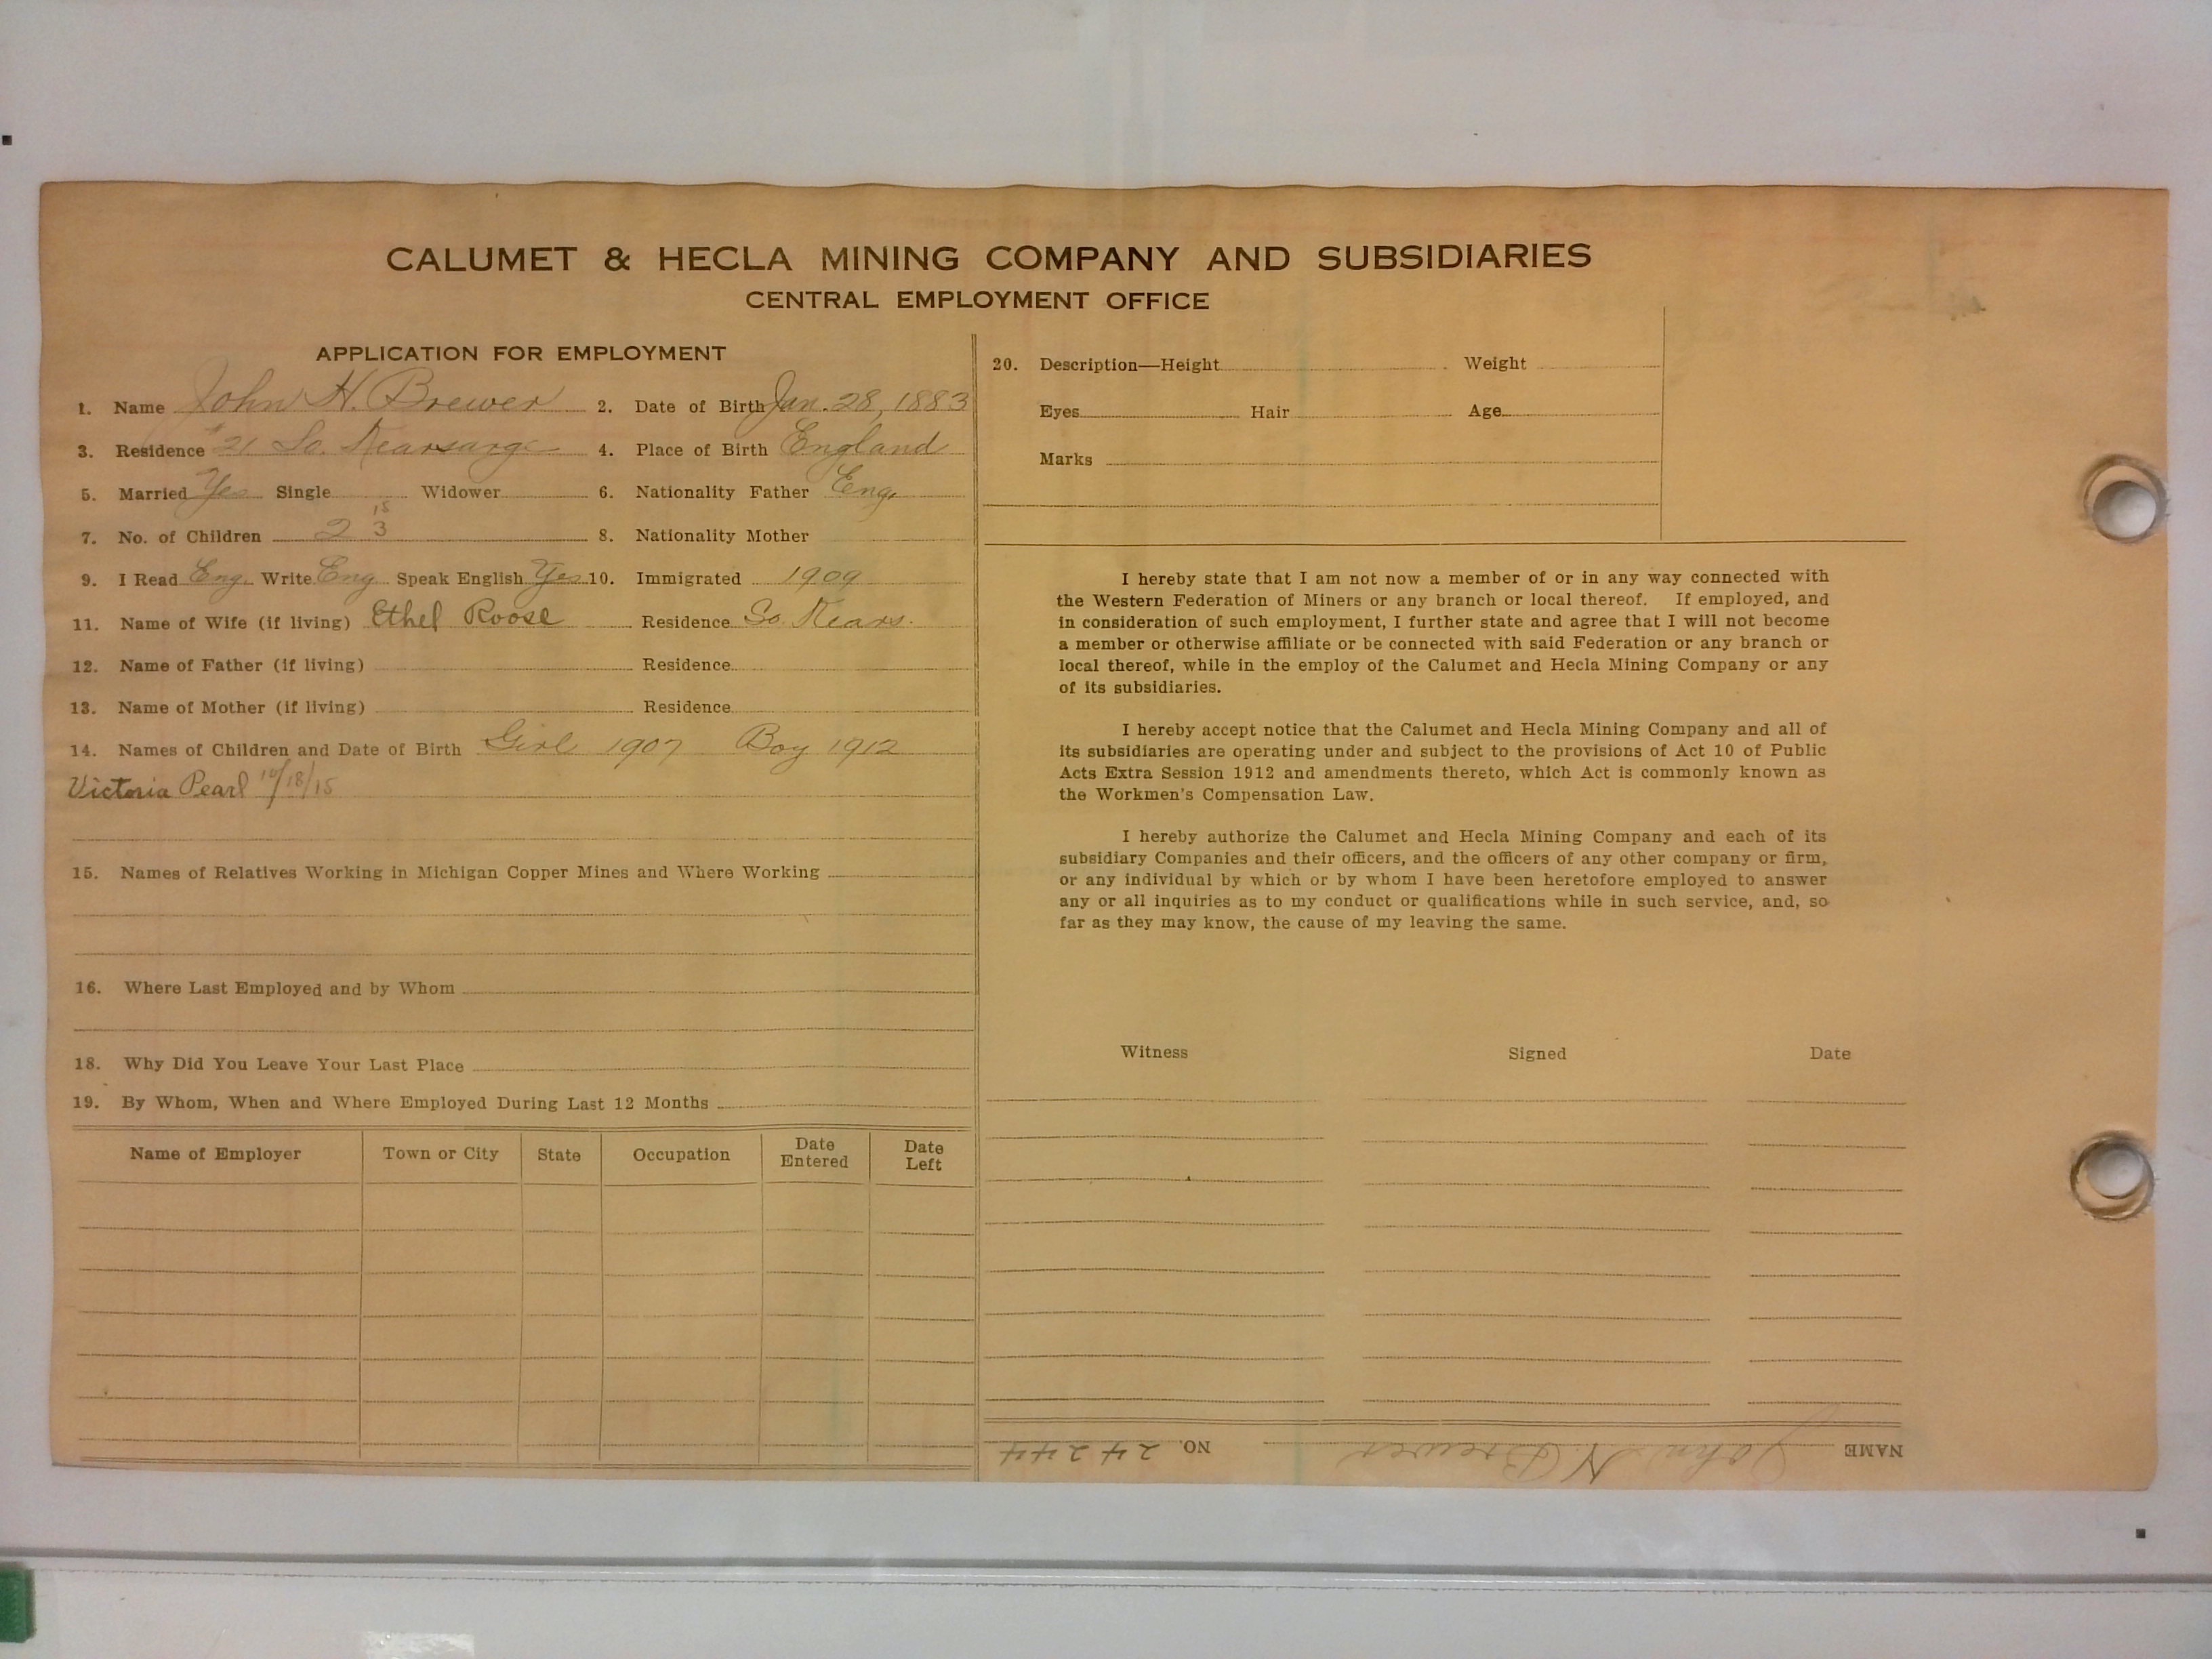 CALUMET & HECLA MINING COMPANY AND SUBSIDIARIES
CENTRAL EMPLOYMENT OFFICE
APPLICATION FOR EMPLOYMENT
1. Name John H. Brewer 2. Date of Birth Jan. 28, 1883
3. Residence #21 So. Kearsarge 4. Place of Birth England
5. Married Yes Single Widower 6. Nationality Father Eng.
15
7. No. of Children 2 3 8. Nationality Mother
9. I Read Eng. Write Eng Speak English Yes 10. Immigrated 1909
11. Name of Wife (if living) Ethel Roose Residence So. Kears.
12. Name of Father (if living) Residence
13. Name of Mother (if living) Residence
14. Names of Children and Date of Birth Girl 1907 Boy 1912
Victoria Pearl 10/18/15
15. Names of Relatives Working in Michigan Copper Mines and Where Working
16. Where Last Employed and by Whom
18. Why Did You Leave Your Last Place
19. By Whom, When and Where Employed During Last 12 Months
Name of Employer Town or City State Occupation Date Entered Date Left
20. Description—Height Weight
Eyes Hair Age
Marks
I hereby state that I am not now a member of or in any way connected with
the Western Federation of Miners or any branch or local thereof. If employed, and
in consideration of such employment, I further state and agree that I will not become
a member or otherwise affiliate or be connected with said Federation or any branch or
local thereof, while in the employ of the Calumet and Hecla Mining Company or any
of its subsidiaries.
I hereby accept notice that the Calumet and Hecla Mining Company and all of
its subsidiaries are operating under and subject to the provisions of Act 10 of Public
Acts Extra Session 1912 and amendments thereto, which Act is commonly known as
the Workmen's Compensation Law.
I hereby authorize the Calumet and Hecla Mining Company and each of its
subsidiary Companies and their officers, and the officers of any other company or firm,
or any individual by which or by whom I have been heretofore employed to answer
any or all inquiries as to my conduct or qualifications while in such service, and, so
far as they may know, the cause of my leaving the same.
Witness Signed Date
NAME John H Brewer NO. 24244